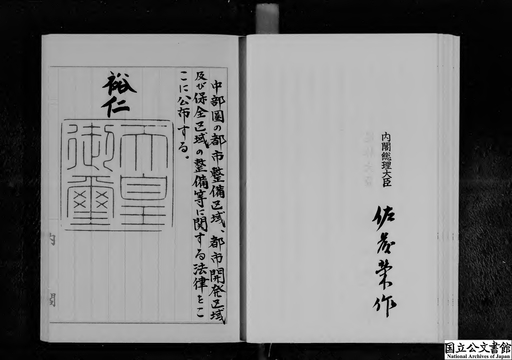 内閣総理大臣
佐藤榮作
中部圏の都市整備区域、都市開発区域
及び保全区域の整備等に関する法律をこ
こに公布する。
裕仁
天皇
御璽
内閣
国立公文書館
National Archives of Japan